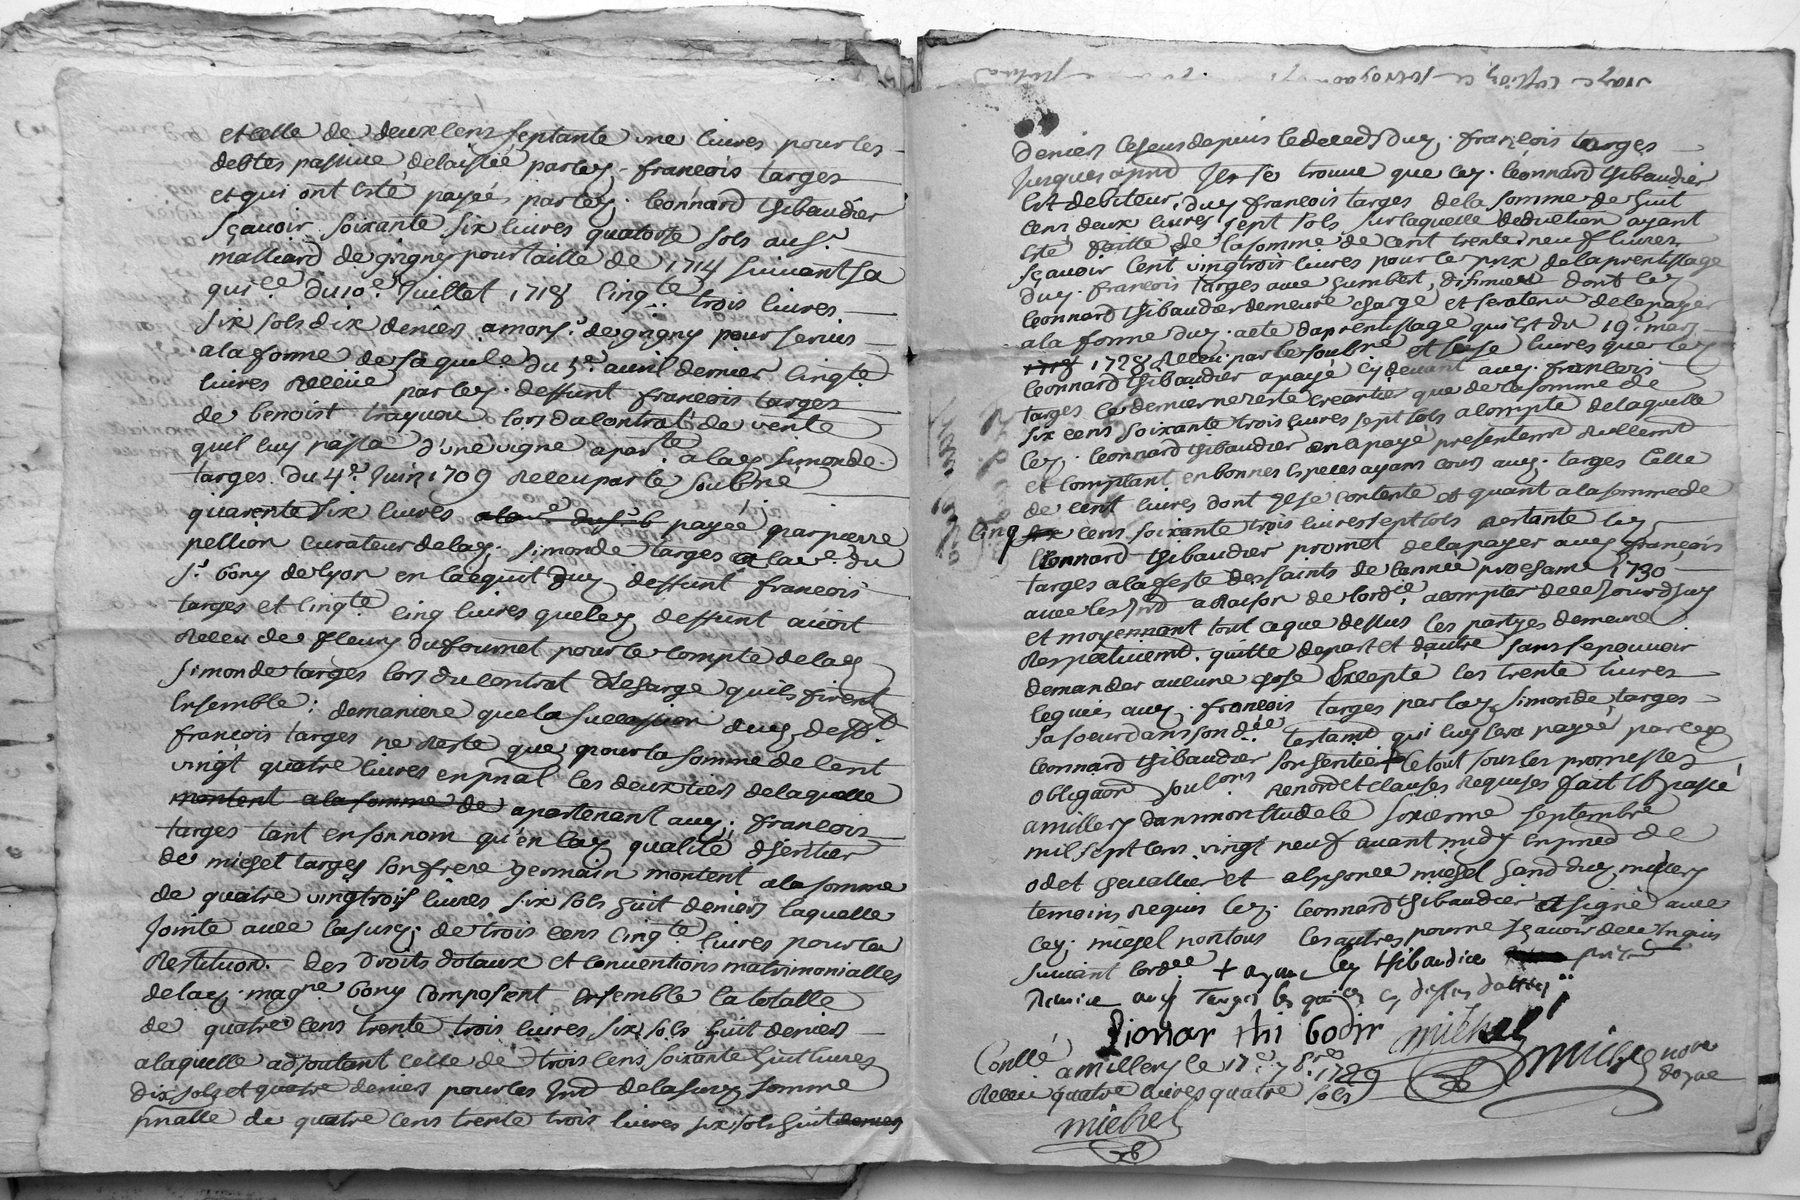 et celle de deux cens septante une livres pour les
debtes passive delaissée par ley. francois targes
et qui ont esté payée par ley. leonnard thibaudier
sçavoir soixante six livres quatorse sols au sr.
malliard de grigny pour taille de 1714 suivant sa
quice. du 10e. Juillet 1718 cinqte. trois livres
six sols dix deniers a monsr. de grigny pour servis
a la forme de sa quice. du 5e. avril dernier cinqte
livres Receue par ley. deffunt francois targes
de benoist trayvou lors du contrat de vente
quil luy passa d'une vigne aparte. a lad simonde
targes du 4e. Juin 1709 Receu par le soubne
quarente six livres payée par pierre
pellion curateur de lad. simonde targes a la ve. du
sr. bony de lyon en lacquit dud deffunt francois
targes et cinqte cinq livres que led deffunt avoit
Receu de fleury dufournel pour le compte de lad
simonde targes lors du contrat deschange quils firent
Ensemble; de maniere que la succession dud. deffft
francois targes ne Reste que pour la somme de cent
vingt quatre livres en pnal les deux tiers de laquelle
montent a la somme de apartenant aud. francois
targes tant en son nom qu'en lad qualité dheritier
de michel targes son frere germain montent a la somme
de quatre vingt trois livres six sols huit deniers laquelle
Jointe avec la susd. de trois cens cinqte livres pour la
Restituon. des droits dotaux et conventions matrimonialles
de lad. magne bony composent ensemble la totalle
de quatre cens trente trois livres six sols huit deniers
a laquelle adjoutant celle de trois cens soixante huit livres
dix sols et quatre deniers pour les Jnd de la susd somme
pnalle de quatre cens trente trois livres six sols huit deniers
deniers Iceux depuis le deceds dud. francois targes
Jusques a pnd Jl se trouve que led. leonnard thibaudier
Est debiteur dud francois targes de la somme de huit
cens deux livres sept sols sur laquelle deduction ayant
esté faitte de la somme de cent trente neuf livres
sçavoir cent vingt trois livres pour le prix de laprentissage
dud. francois targes avec humbert dont led
leonnard thibaudier demeure chargé et sera tenu de le payer
a la forme dud. acte daprentissage qui est du 19e. mars
1718 1728 Receu par le soubne et seise livres que led
leonnard thibaudier a payé cy devant aud. francois
targes ce dernier ne reste creantier que de la somme de
six cens soixante trois livres sept sols a compte de laquelle
led. leonnard thibaudier en a payé presentemt Reellemt
et comptant en bonnes Especes ayans cours aud. targes celle
de cent livres dont Jl se contente et quant a la somme de
cinq cens soixante trois livres sept sols Restante led
leonnard thibaudier promet de la payer aud francois
targes a la feste des saints de lannée prochaine 1730
avec les Jnd a Raison de lordce. a compter de ce Jourdhuy
et moyennant tout ce que dessus les partyes demeure
Respectivemt. quitte de part et dautre sans se pouvoir
demander aucune chose Excepté les trente livres
legués aud. francois targes par lad. simonde targes
sa soeur dans son dee testamt qui luy sera payée par led
leonnard thibaudier son heritier + le tout sous les promesses
obligaon soubons Renon et clauses Requises fait et passé
a millery dans mon Etude le sixieme septembre
mil sept cens vingt neuf avant midy En pnce de
odet chevallier et alphonce michel hand dud millery
temoins Requis led; leonnard thibaudier a signé avec
led; michel non tous les autres pour ne sçavoir de ce Enquis
suivant lordce + ayant led thibaudier
Remise aud targes les quices cy dessus dattées
Lionar thi bodir michel
michel nore royal
Conllé a millery le 17e. 7bre. 1729
Receu quatre livres quatre sols
michel